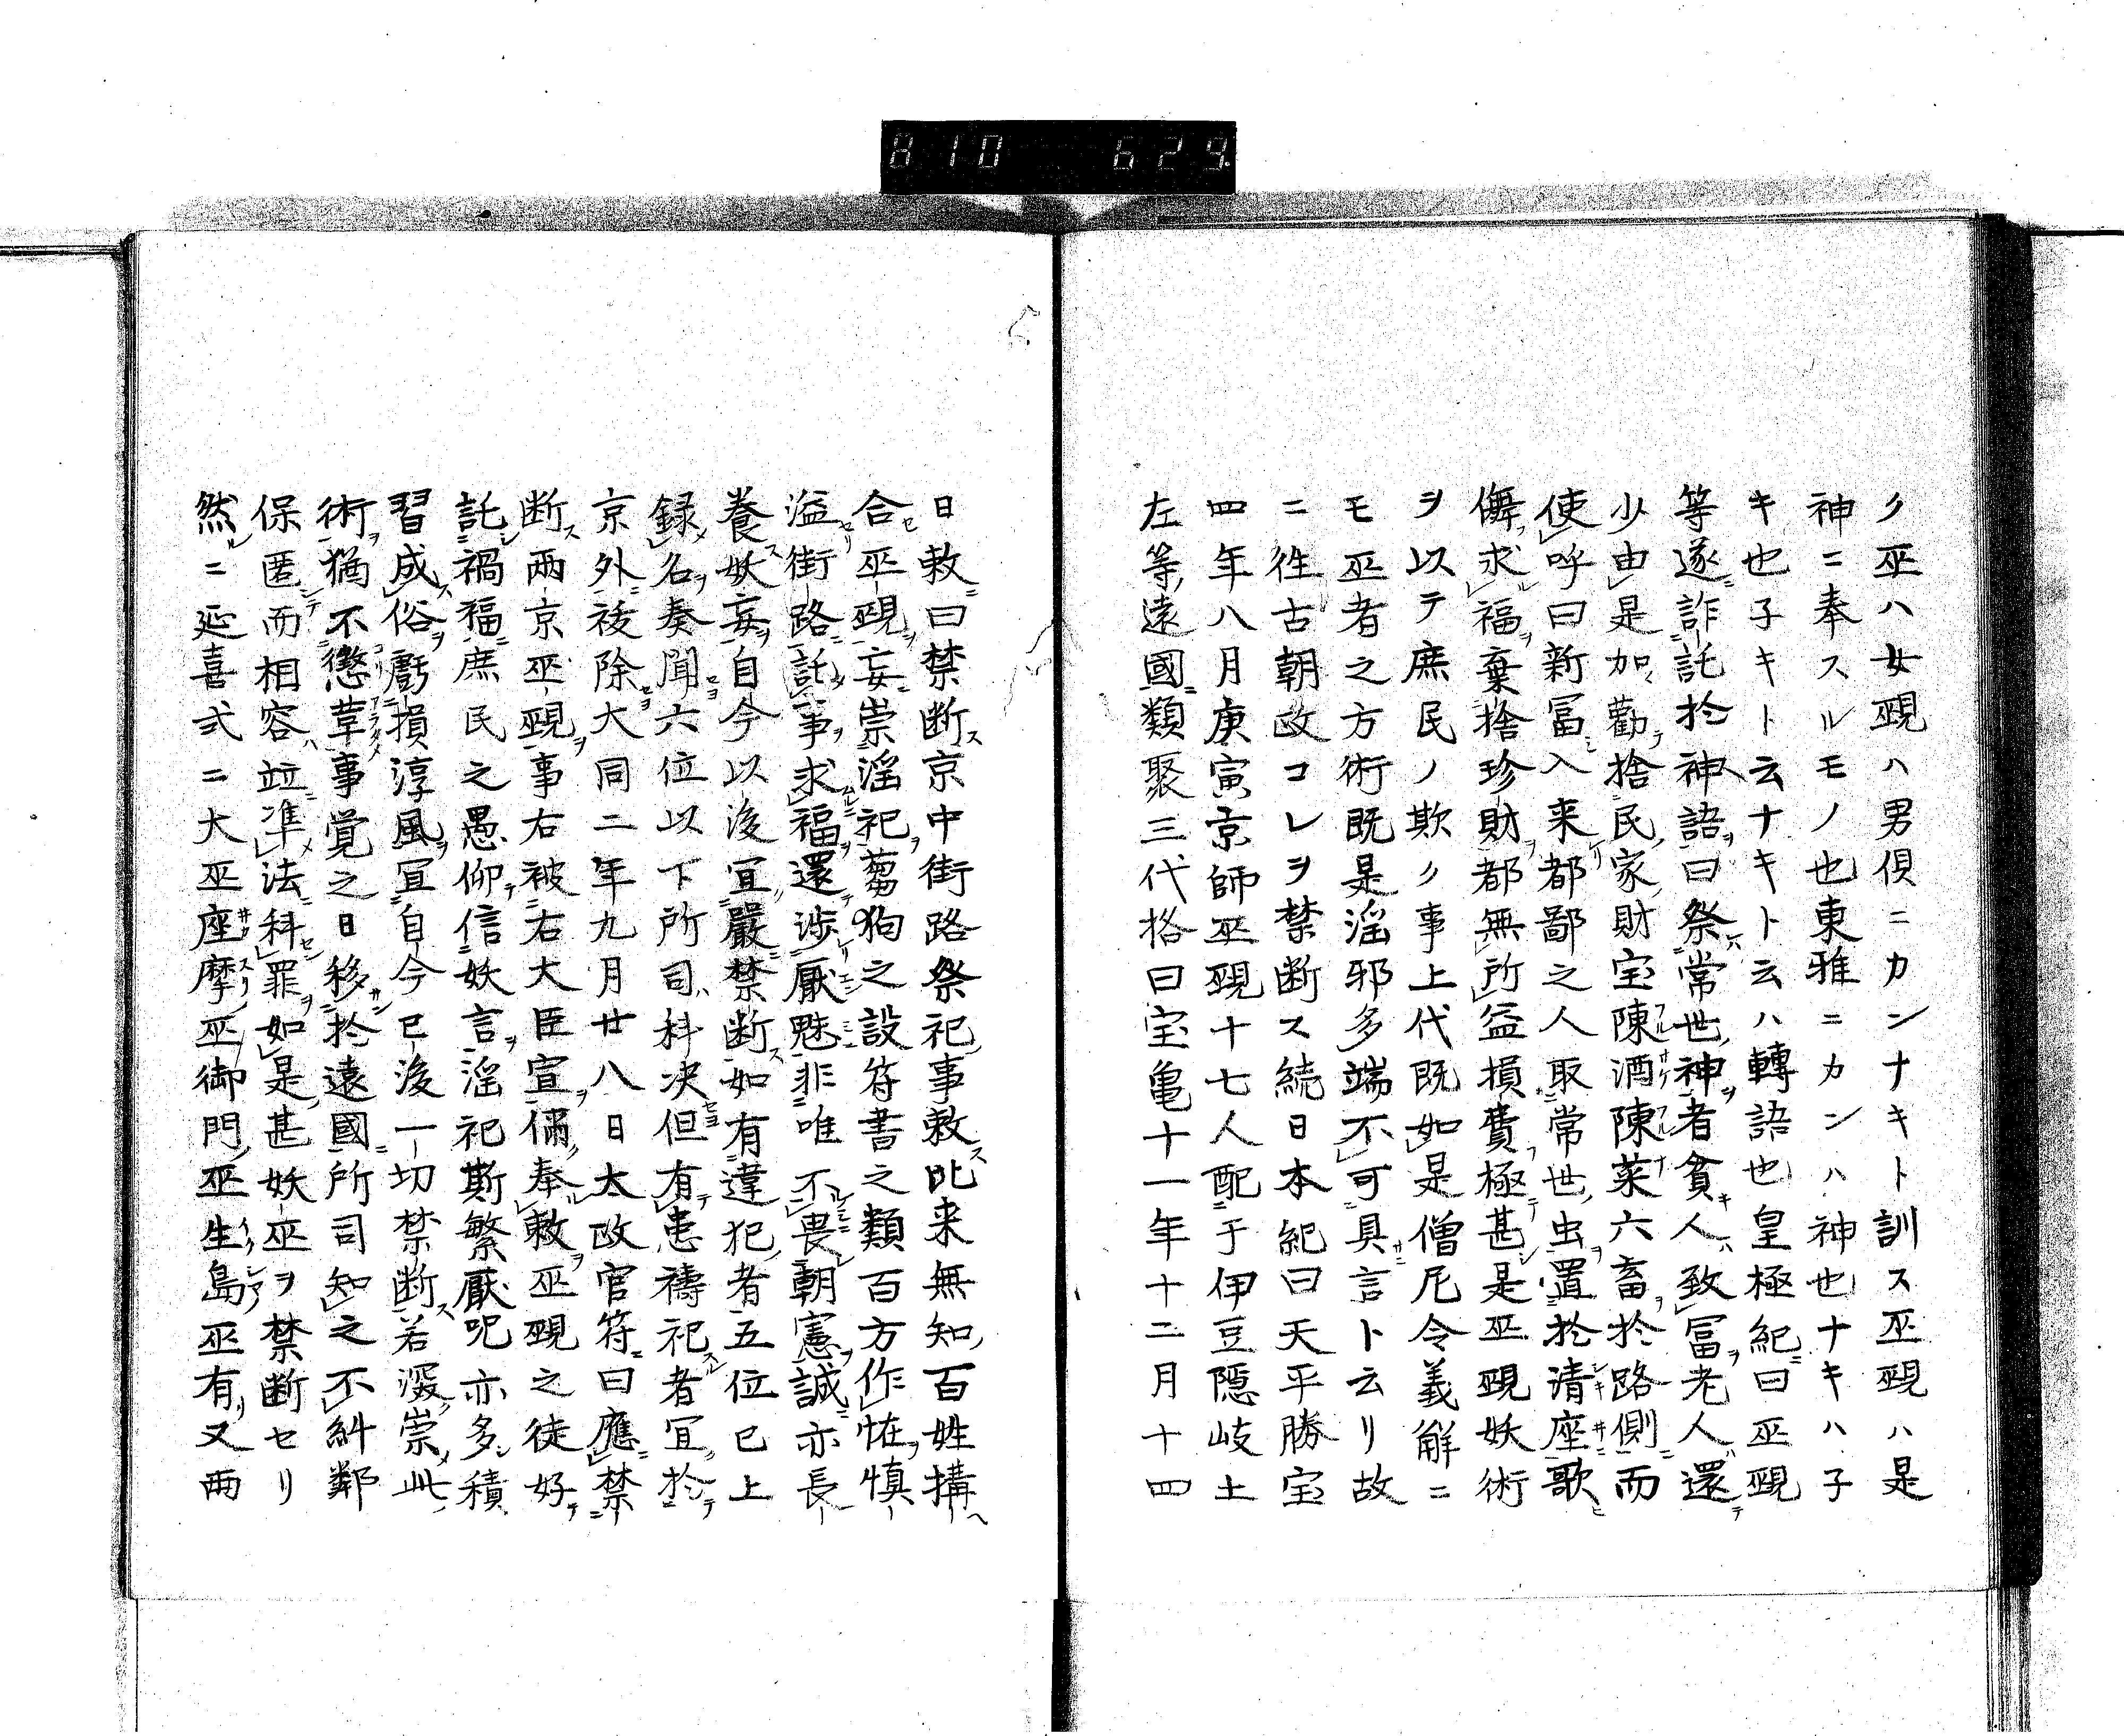 810 629
ク巫ハ女覡ハ男倶ニカンナキト訓ス巫覡ハ是
神ニ奉スルモノ也東雅ニカンハ神也ナキハ子
キ也子キト云ナキト云ハ轉語也皇極紀曰巫覡
等遂詐託於神語曰祭常世神者貧人致冨老人還
少由是加勸捨民家財宝陳酒陳菜六畜於路側而
使呼曰新冨入来都鄙之人取常世虫置於清座歌
儛求福棄捨珍財都無所益損費極甚是巫覡妖術
ヲ以テ庶民ノ欺ク事上代既如是僧尼令義解ニ
モ巫者之方術既是淫邪多端不可具言ト云リ故
ニ徃古朝政コレヲ禁断ス続日本紀曰天平勝宝
四年八月庚寅京師巫覡十七人配于伊豆隠岐土
左等遠國類聚三代格曰宝亀十一年十二月十四
日敕曰禁断京中街路祭祀事敕比来無知百姓搆
合巫覡妄崇淫祀蒭狗之設符書之類百方作恠慎
溢街路託事求福還渉厭魅非唯不畏朝憲誠亦長
養妖妄自今以後宜嚴禁断如有違犯者五位已上
録名奏聞六位以下所司科决但有患禱祀者宜於
京外祓除大同二年九月廿八日太政官符曰應禁
断兩京巫覡事右被右大臣宣偁奉敕巫覡之徒好
託禍福庶民之愚仰信妖言淫祀斯繁厭呪亦多積
習成俗虧損淳風宜自今已後一切禁断若深崇此
術猶不懲革事覚之日移於遠國所司知之不糾鄰
保匿而相容竝準法科罪如是甚妖巫ヲ禁断セリ
然ニ延喜式ニ大巫座摩巫御門巫生島巫有又両